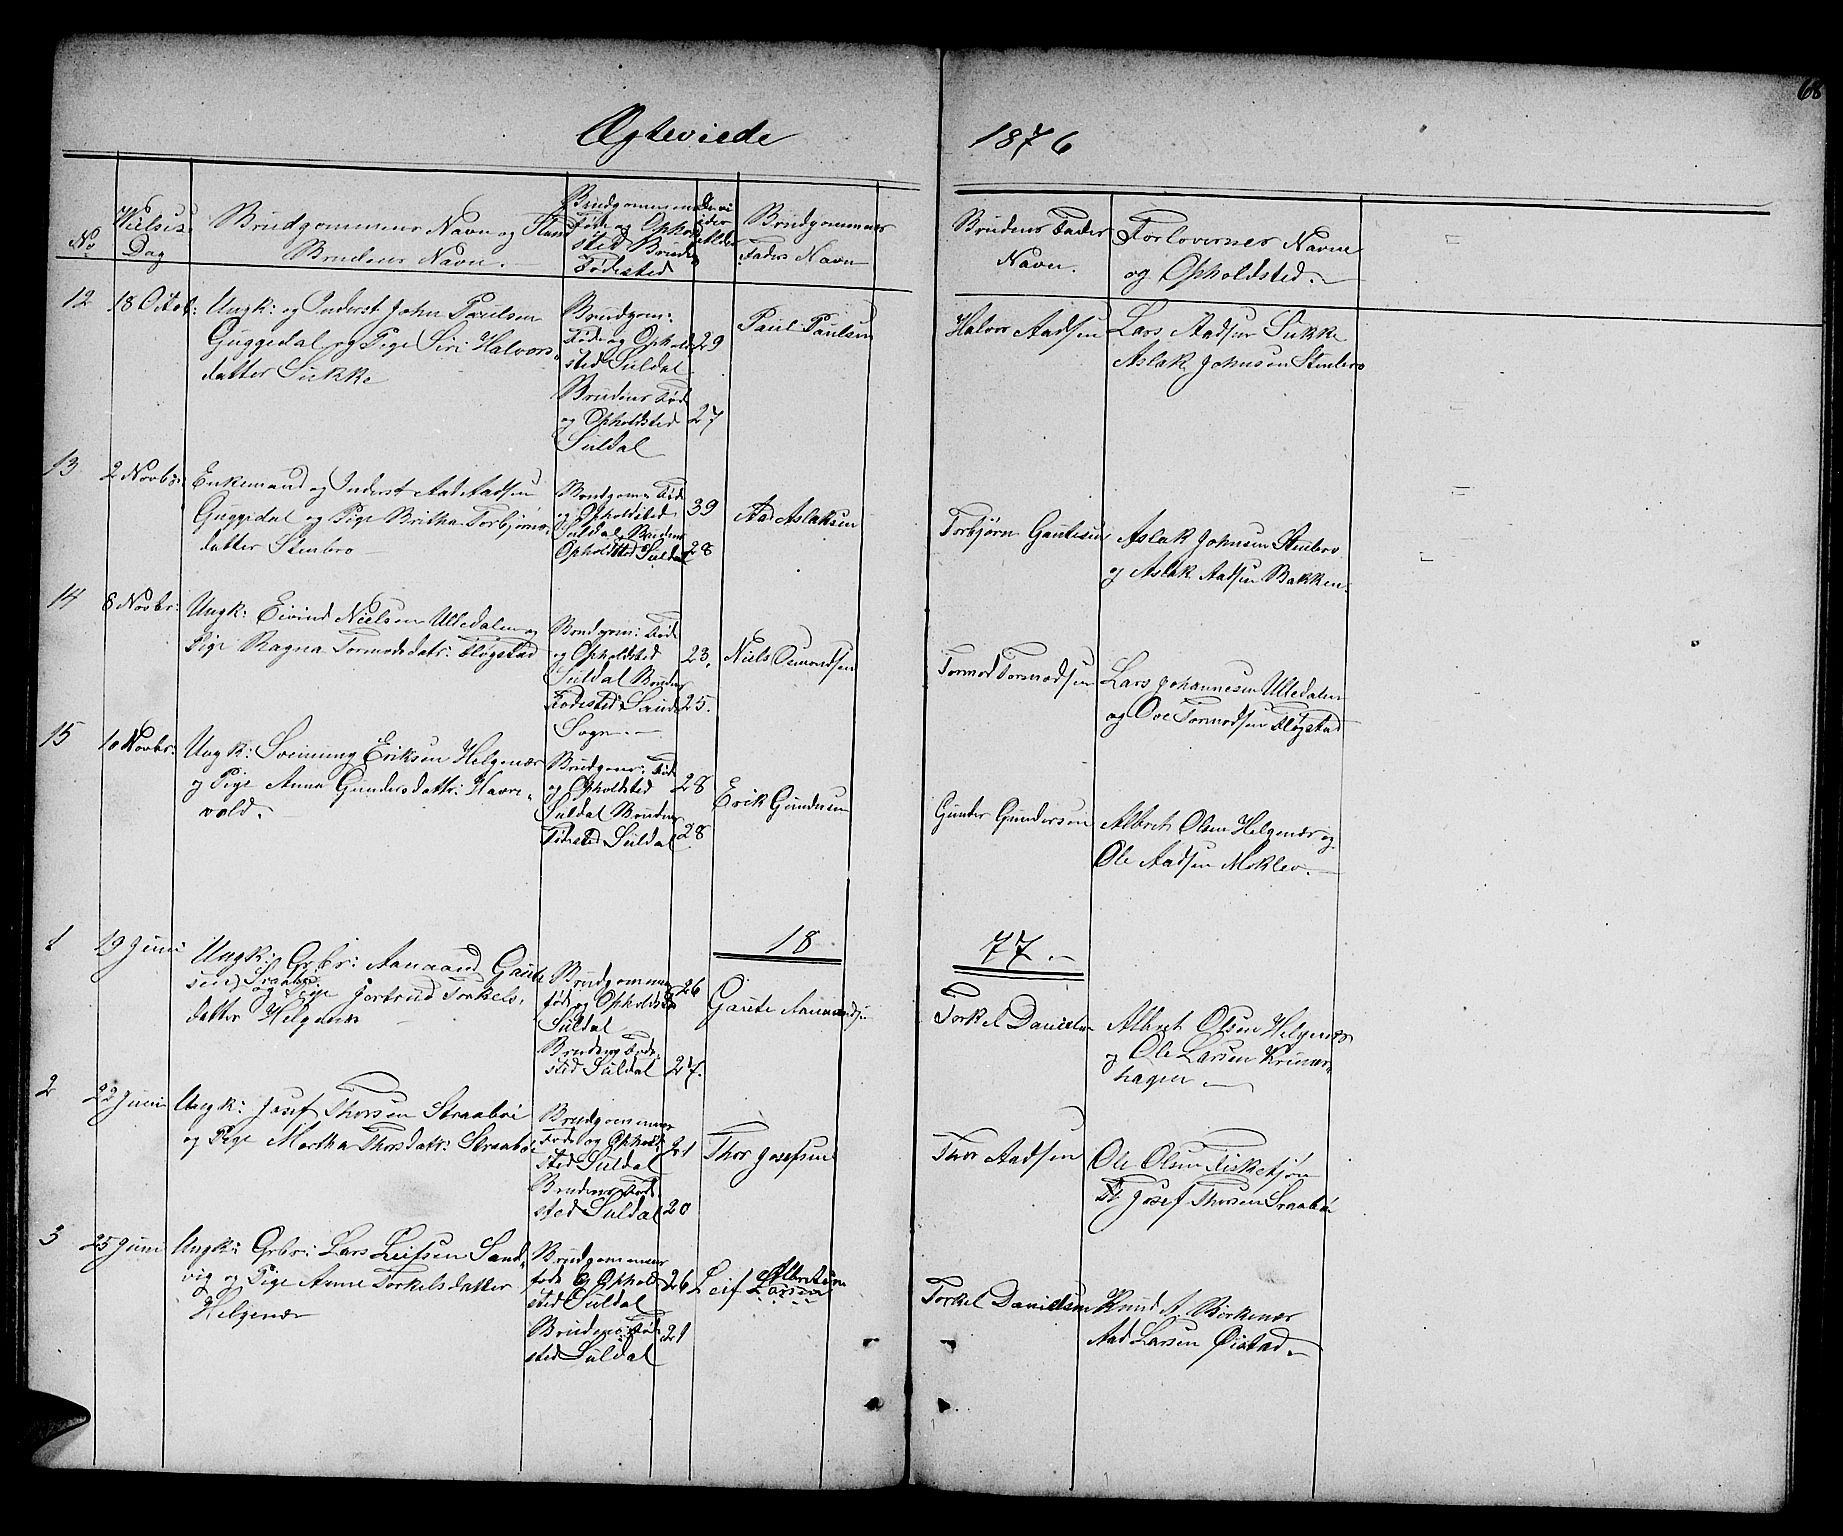 68
Ægteviede 1876
No
Vielses Dag
Brudgommens Navn og Stand
Brudens Navn.
Brudgommens
Føde og Ophold
sted Brudens
Fødested
Brudgommens
Faders Navn
Brudens Fader
Navn.
Forlovernes Navne
og Opholdsted.
12 18 Octob: Ungk: og Inderst John Paulsen
Guggedal og Pige Siri Halvors-
datter Sukke
Brudgom:
Føde og Ophold
sted Suldal 29
Brudens Fød
og Opholdsted 27
Suldal
Paul Paulsen
Halvor Aadsen
Lars Aadsen Sukke
Aslak Johnsen Stenbro
13 2 Novbr: Enkemand og Inderst Aad Aadsen
Guggedal og Pige Britha Torbjørns
datter Stenbro
Brudgom: Fød
og Opholdsted 39
Suldal Brudens
Opholdsted Suldal 28
Aad Aslaksen
Torbjørn Gautesen
Aslak Johnsen Stenbro
og Aslak Aadsen Bakken.
14 8 Novbr: Ungk: Eivind Nielsen Ulledalen og
Pige Ragna Tormodsdatr: Fløgstad
Brudgom: Fød
og Opholdsted 23.
Suldal Brudens
Fødested Saude 25.
Sogn.
Niels Osmondsen
Tormod Tormodsen
Lars Johannesen Ulledalen
og Ove Tormodsen Fløgstad
15 10 Novbr: Ungk: Sveinung Eriksen Helgenær
og Pige Anna Gundersdattr: Havre-
vold.
Brudgom: Fød
og Opholdsted 28
Suldal Brudens
Fødested Suldal 28
Erik Gundersen
Gunder Gundersen
Albret Olsen Helgenær og
Ole Aadsen Moklev.
18 77.
1 19 Juni Ungk: Grbr: Aanaand Gaute
sen Straabø og Pige Jertrud Torkels-
datter Helgenær
Brudgommens
føde og Opholdsted 26
Suldal
Brudens Føde-
sted Suldal 27.
Gaute Aanaandsen
Torkel Danielsen
Albret Olsen Helgenær
og Ole Larsen
hagen
2 22 Juni Ungk: Josef Thorsen Straabøe
og Pige Martha Thorsdatr: Straabøe
Brudgommens
Føde og Ophold 21
sted Suldal
Brudens Fød
sted Suldal 20
Thor Josefsen
Thor Aadsen
Ole Olsen Fisketjøn
Josef Thorsen Straabø
3 25 Juni Ungk: Grbr: Lars Leifsen Sand-
vig og Pige Anne Torkelsdatter
Helgenær
Brudgommens
føde & Ophold 26
sted Suldal
Brudens Fød
sted Suldal 21
Leif Albretsen
Larsen
Torkel Danielsen
Knud A. Birkenær
Aad Larsen Øistad.